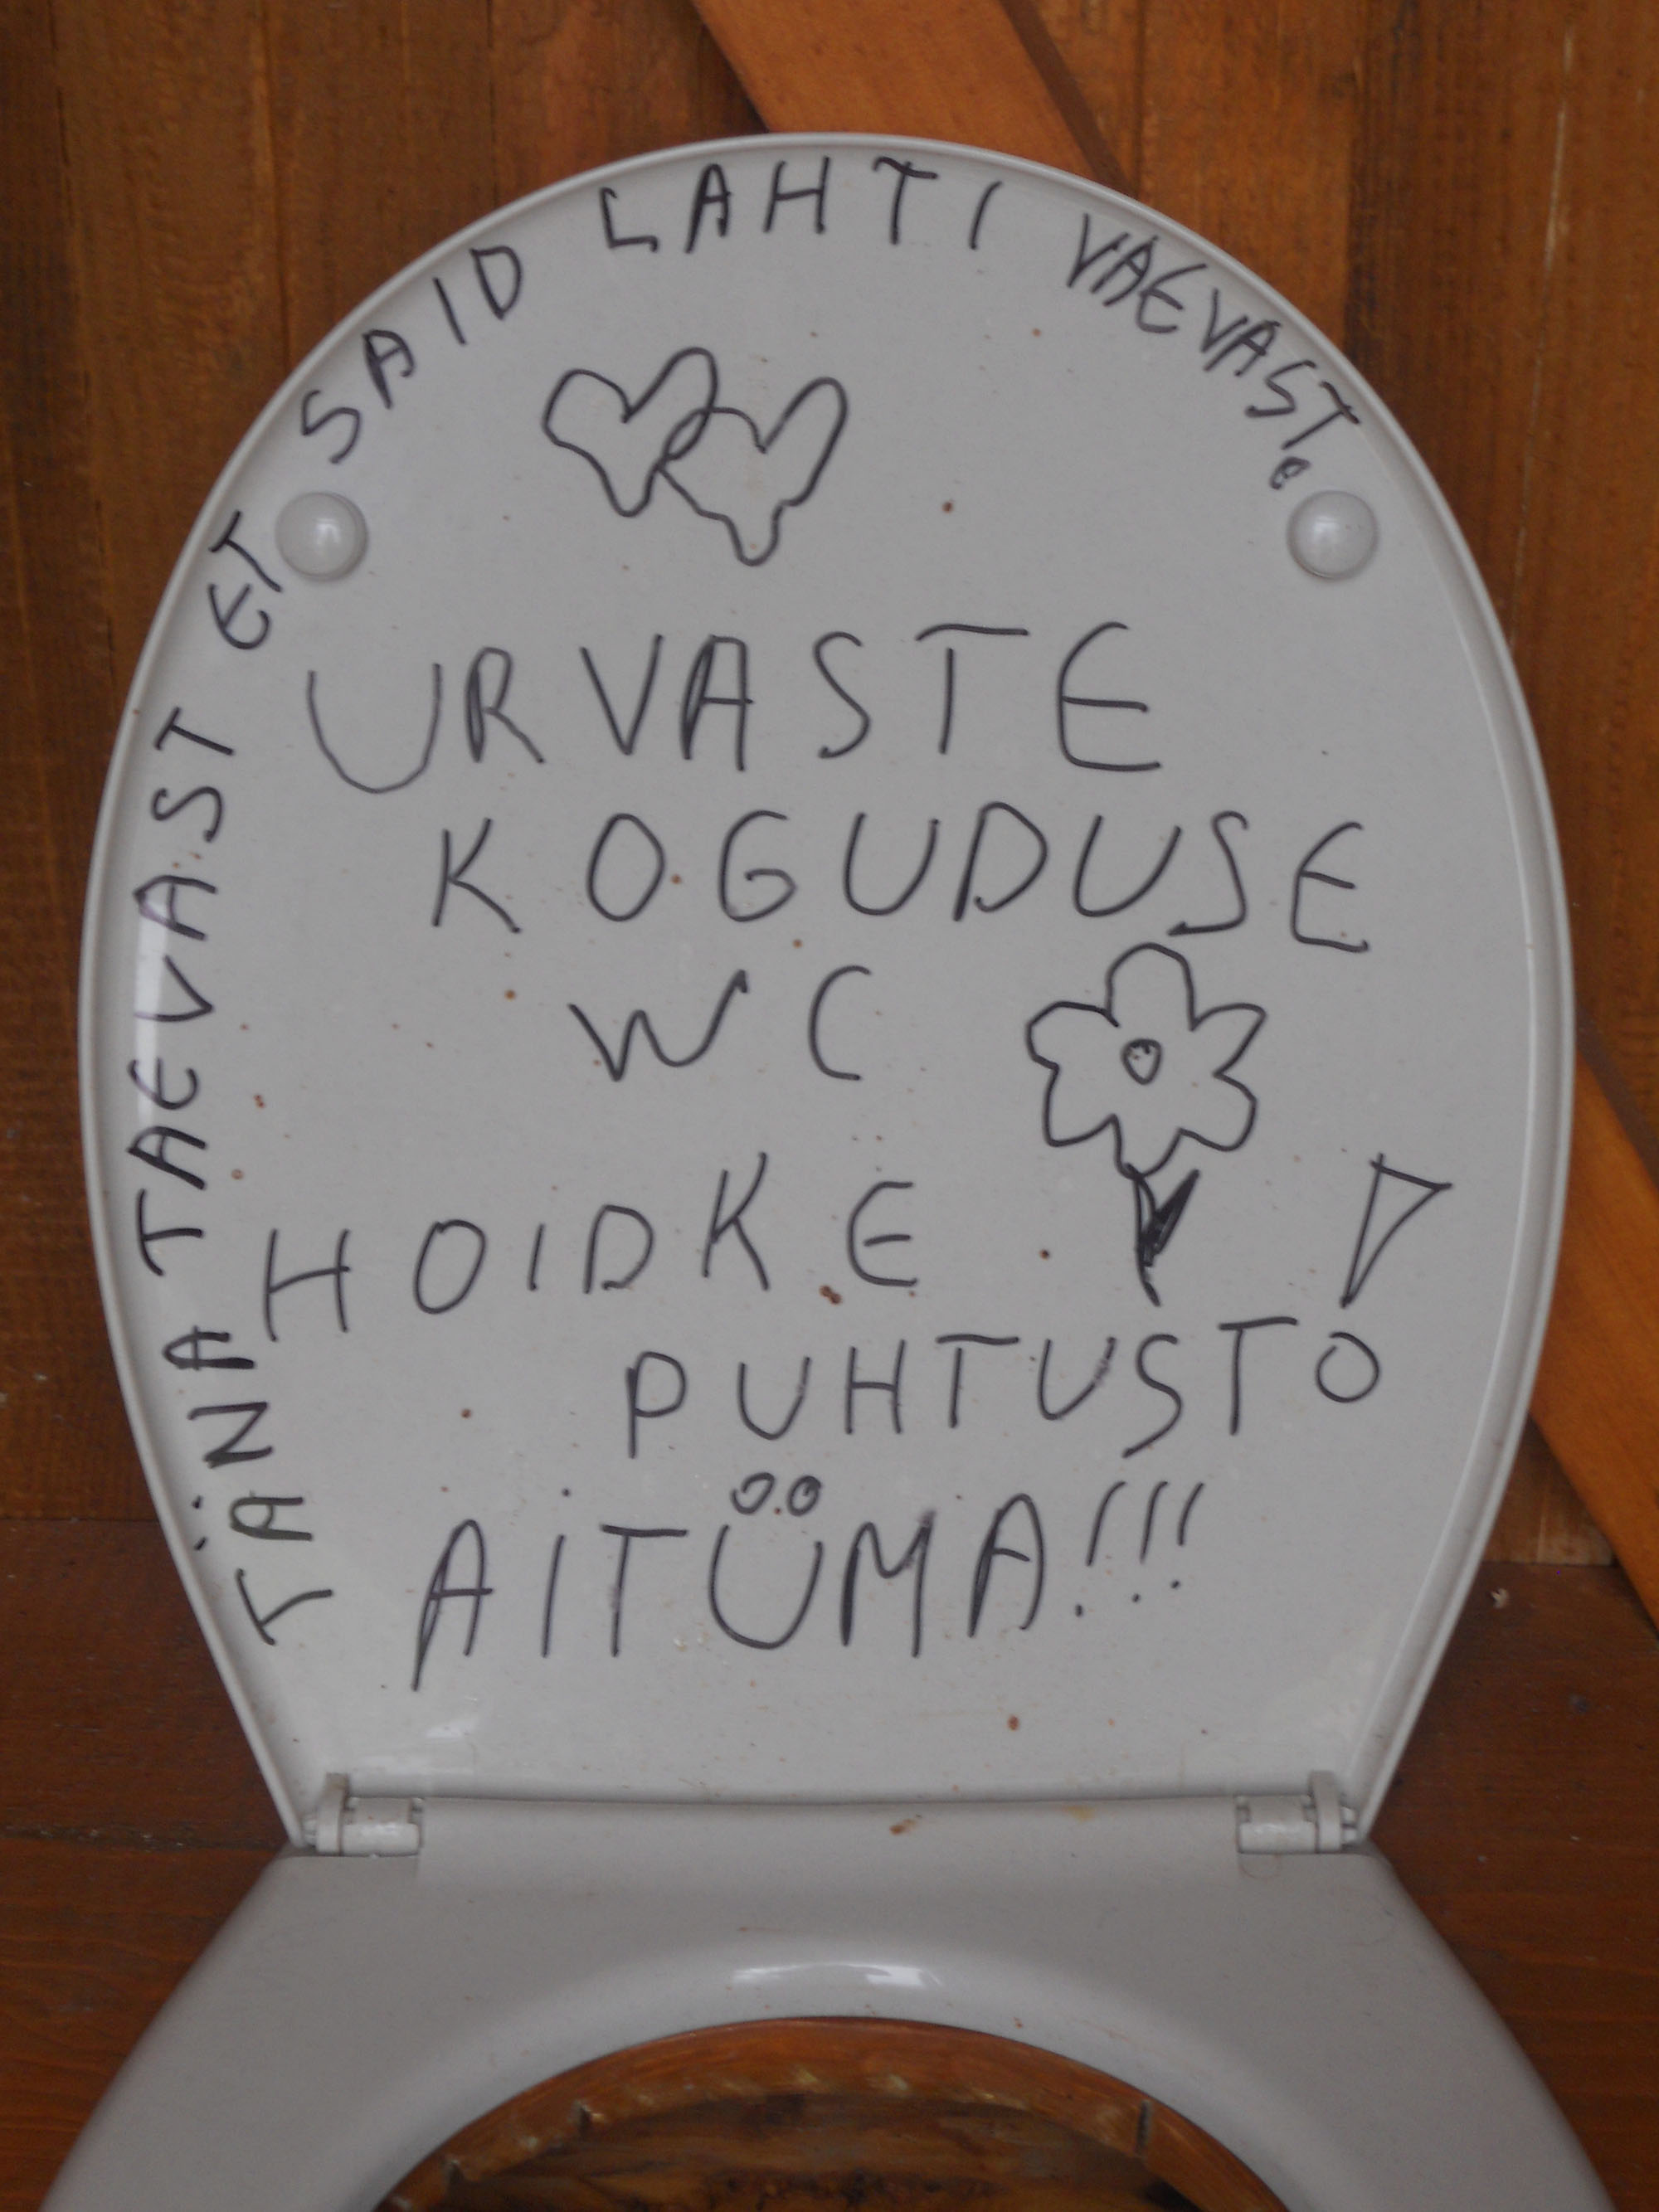 TÄNA TAEVAST ET SAID LAHTI VAEVAST.
URVASTE
KOGUDUSE
WC
HOIDKE
PUHTUST!
AITÜMA!!!